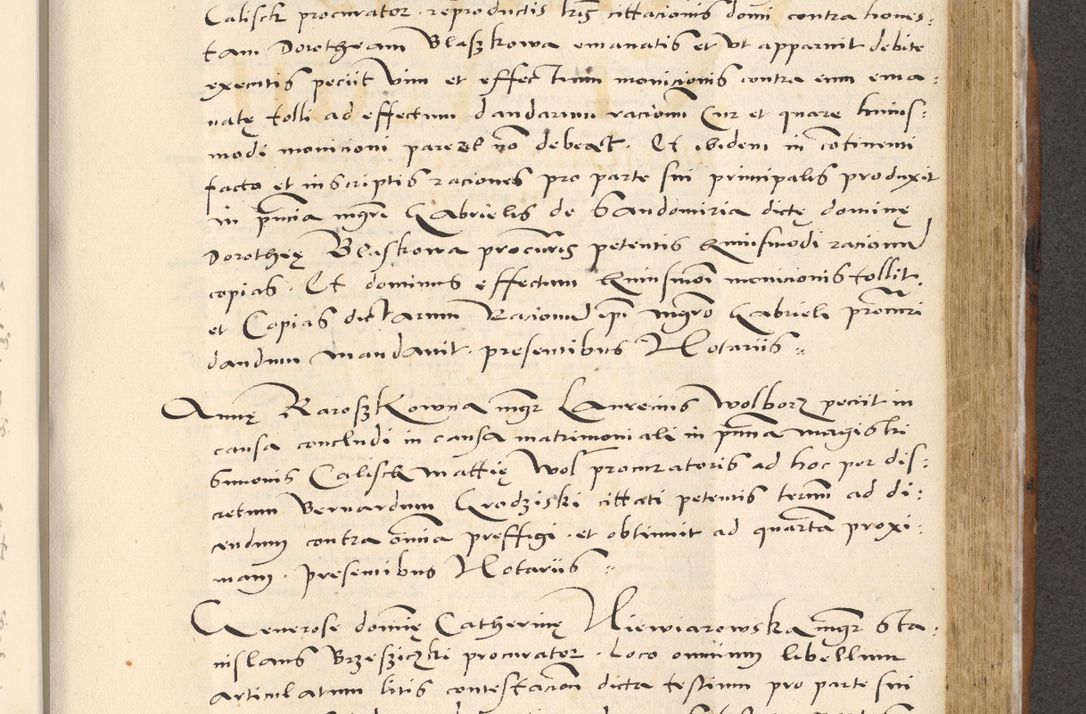 Calisch procurator reproductis lris cittacionis domi contra hones:
tam Dorotheam Blaszkowa emanatis et ut apparuit debite
executis peciit vim et effectum monicionis contra eum ema:
natę tolli ad effectum dandarum racionum Cur et quare huius:
modi monicioni parere non debeat. Et ibidem in continenti
facto et in scriptis raciones pro parte sui principalis produxit
in pncia mgri Gabrielis de Sandomiria dictę dominę
Dorotheę Blaskowa procuris petentis huiusmodi racionum
copias. Et dominus effectum huiusmodi monicionis tollit
et Copias dictarum Racionum ipi mgro Gabrieli procuri
dandum mandavit. presentibus Notariis
Annę Raroszkowna mgr Laurecius Wolborz peciit in
causa concludi in causa matrimoniali in pncia magistri
Simonis Calisch Mattię Wol procuratoris ad hoc per dis:
cretum Bernardum Grodziski cittati petentis termi ad di:
cendum contra omnia preffigi. et obtinuit ad quartam proxi:
mam. presentibus Notariis
Generose domię Catherinę Niewiarowska mgr Sta:
nislaus Brzeziczki procurator. Loco omnium libellum
articulatum litis contestacion dicta testium pro parte sui